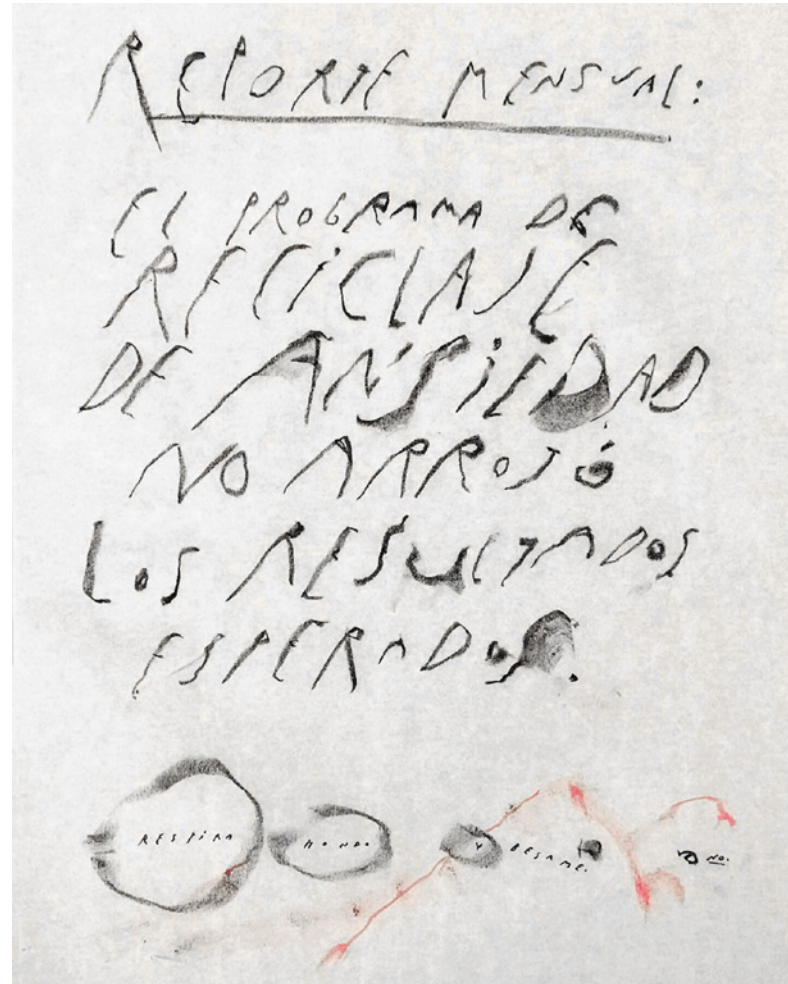 REPORTE MENSUAL:
EL PROGRAMA DE
RECICLAJE
DE ANSIEDAD
NO ARROJÓ
LOS RESULTADOS
ESPERADOS.
RESPIRA HONDO Y BESAME. O NO.